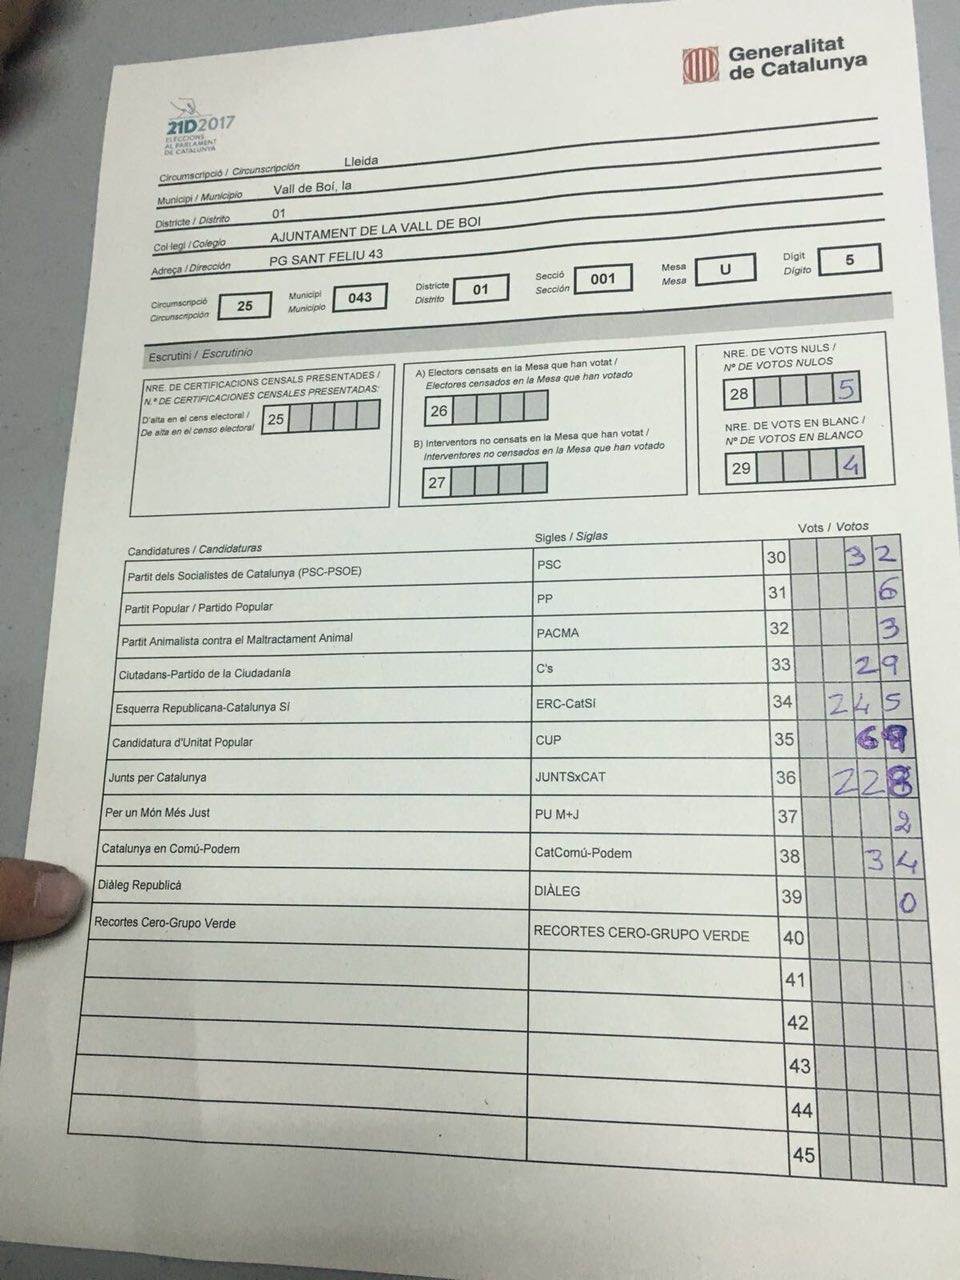 Generalitat
de Catalunya
21D2017
ELECCIONS
AL PARLAMENT
DE CATALUNYA
Circumscripció / Circunscripción Lleida
Municipi / Municipio Vall de Boí, la
Districte / Distrito 01
Col·legi / Colegio AJUNTAMENT DE LA VALL DE BOI
Adreça / Dirección PG SANT FELIU 43
Circumscripció Circunscripción 25 Municipi Municipio 043 Districte Distrito 01 Secció Sección 001 Mesa Mesa U Dígit Dígito 5
Escrutini / Escrutinio
NRE. DE CERTIFICACIONS CENSALS PRESENTADES /
N.º DE CERTIFICACIONES CENSALES PRESENTADAS:
D'alta en el cens electoral /
De alta en el censo electoral 25
A) Electors censats en la Mesa que han votat /
Electores censados en la Mesa que han votado
26
B) Interventors no censats en la Mesa que han votat /
Interventores no censados en la Mesa que han votado
27
NRE. DE VOTS NULS /
Nº DE VOTOS NULOS
28 5
NRE. DE VOTS EN BLANC /
Nº DE VOTOS EN BLANCO
29 4
Candidatures / Candidaturas Sigles / Siglas Vots / Votos
Partit dels Socialistes de Catalunya (PSC-PSOE) PSC 30 32
Partit Popular / Partido Popular PP 31 6
Partit Animalista contra el Maltractament Animal PACMA 32 3
Ciutadans-Partido de la Ciudadanía C's 33 29
Esquerra Republicana-Catalunya Sí ERC-CatSí 34 245
Candidatura d'Unitat Popular CUP 35
Junts per Catalunya JUNTSxCAT 36 228
Per un Món Més Just PU M+J 37 2
Catalunya en Comú-Podem CatComú-Podem 38 34
Diàleg Republicà DIÀLEG 39 0
Recortes Cero-Grupo Verde RECORTES CERO-GRUPO VERDE 40
41
42
43
44
45